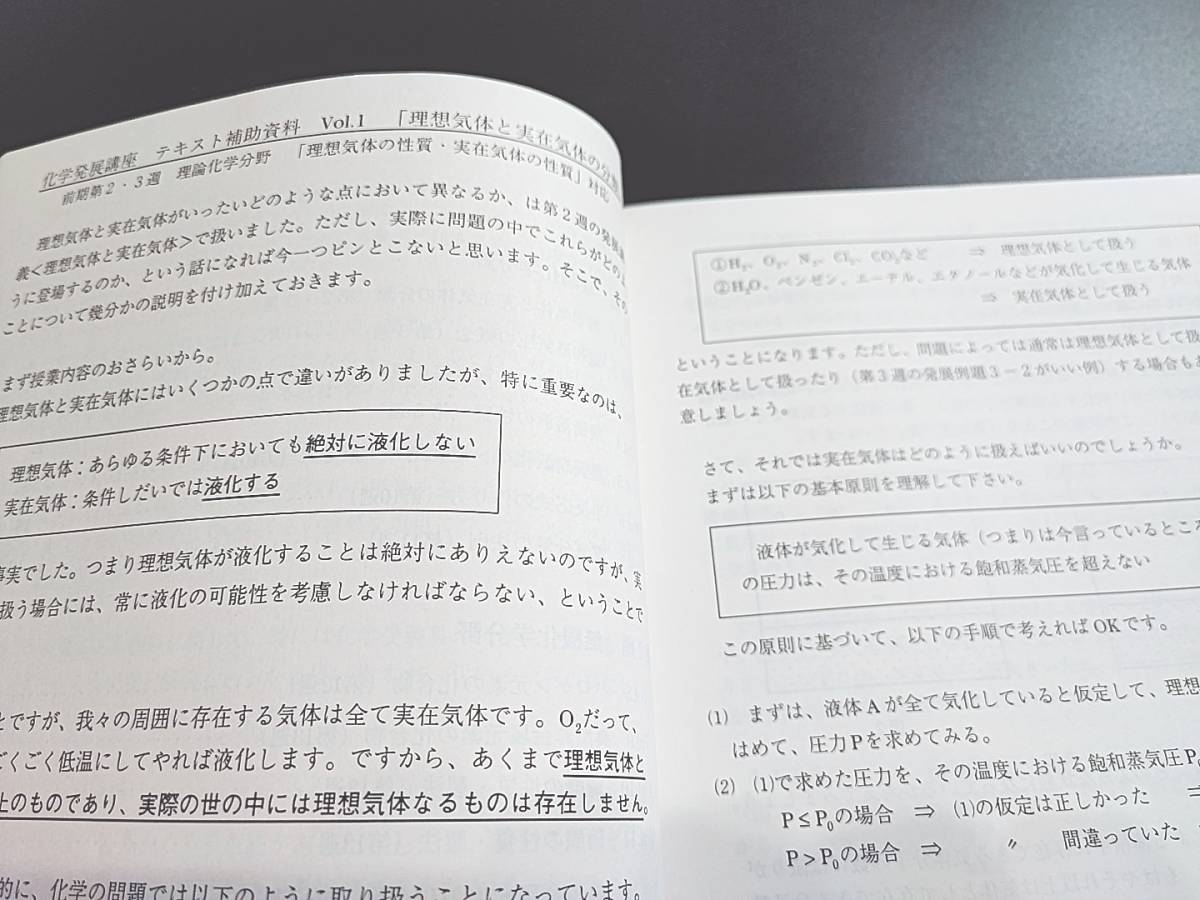 化学発展講座 テキスト補助資料 Vol.1 「理想気体と実在気体の分
前期第2・3週 理論化学分野 「理想気体の性質・実在気体の性質」対応
理想気体と実在気体がいったいどのような点において異なるか、は第2週の発展
義<理想気体と実在気体>で扱いました。ただし、実際に問題の中でこれらがどのよ
うに登場するのか、という話になれば今一つピンとこないと思います。そこで、その
ことについて幾分かの説明を付け加えておきます。
まず授業内容のおさらいから。
理想気体と実在気体にはいくつかの点で違いがありましたが、特に重要なのは、
理想気体:あらゆる条件下においても絶対に液化しない
実在気体:条件しだいでは液化する
事実でした。つまり理想気体が液化することは絶対にありえないのですが、実
扱う場合には、常に液化の可能性を考慮しなければならない、ということで
とですが、我々の周囲に存在する気体は全て実在気体です。O₂だって、
ごくごく低温にしてやれば液化します。ですから、あくまで理想気体と
上のものであり、実際の世の中には理想気体なるものは存在しません。
的に、化学の問題では以下のように取り扱うことになっています。
①H₂、O₂、N₂、Cl₂、CO₂など ⇒ 理想気体として扱う
②H₂O、ベンゼン、エーテル、エタノールなどが気化して生じる気体
⇒ 実在気体として扱う
ということになります。ただし、問題によっては通常は理想気体として扱
在気体として扱ったり(第3週の発展例題3-2がいい例)する場合もあ
意しましょう。
さて、それでは実在気体はどのように扱えばいいのでしょうか。
まずは以下の基本原則を理解して下さい。
液体が気化して生じる気体(つまりは今言っているところ
の圧力は、その温度における飽和蒸気圧を超えない
この原則に基づいて、以下の手順で考えればOKです。
(1) まずは、液体Aが全て気化していると仮定して、理想
はめて、圧力Pを求めてみる。
(2) (1)で求めた圧力を、その温度における飽和蒸気圧P₀
P≤P₀の場合 ⇒ (1)の仮定は正しかった ⇒
P>P₀の場合 ⇒ 〃 間違っていた